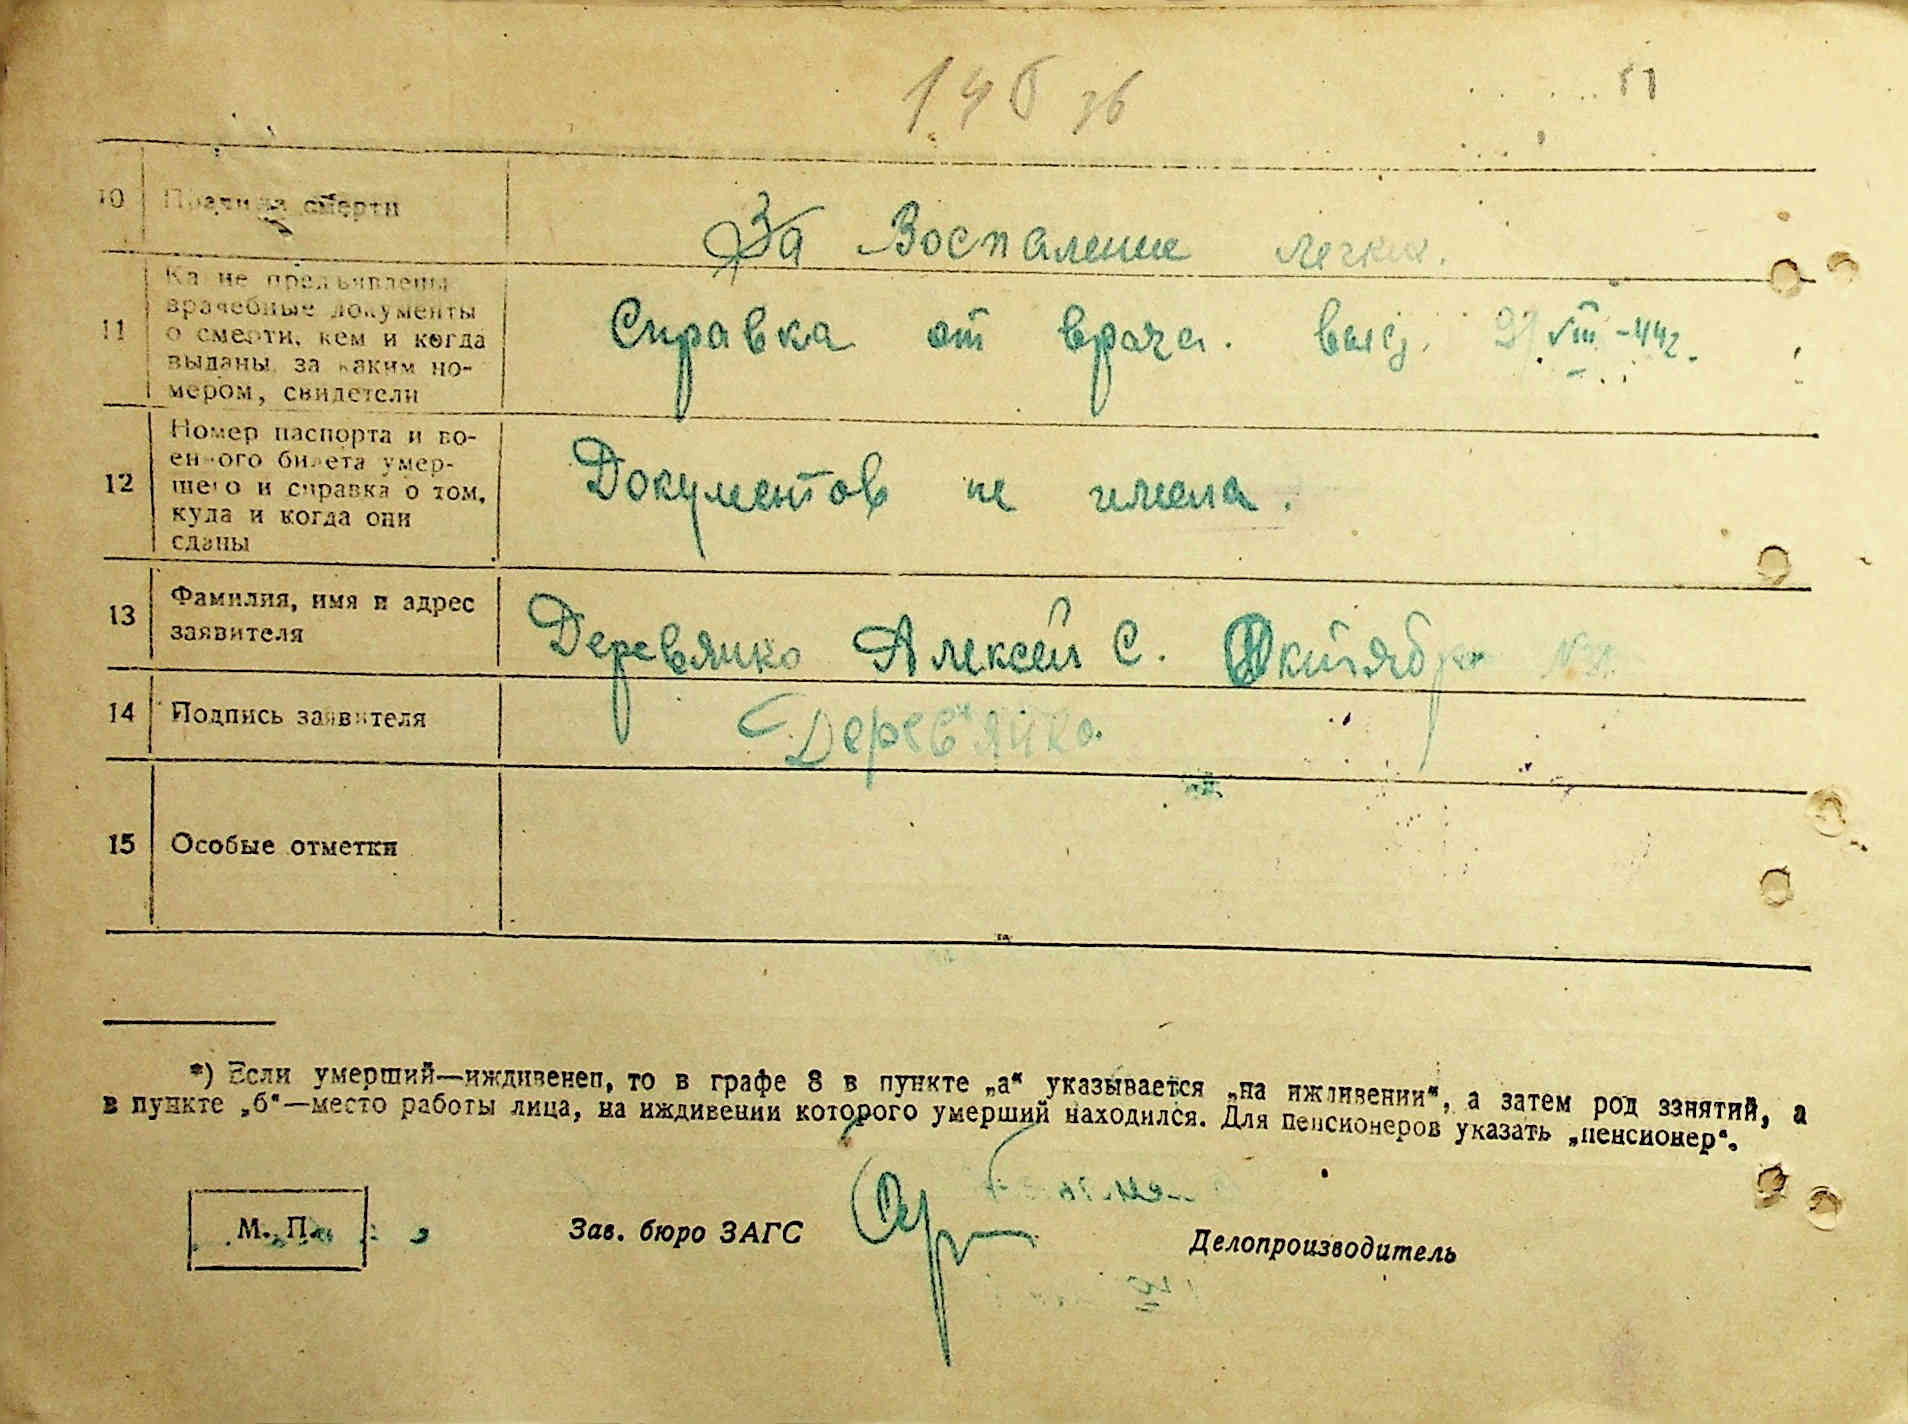 10 Причина смерти За Воспаление легких.
Ка не предъявлены
врачебные документы
11 о смерти, кем и когда Справка от врача. выд. VIII-44г.
выданы, за каким но-
мером, свидетели
Номер паспорта и во-
енного билета умер-
12 шего и справка о том, Документов не имела.
куда и когда они
сданы
13 Фамилия, имя и адрес Деревянко Алексей С. Октября
заявителя
14 Подпись заявителя Дерев'янко.
15 Особые отметки
*) Если умерший—иждивенец, то в графе 8 в пункте „а“ указывается „на иждивении“, а затем род занятий, а
в пункте „б“—место работы лица, на иждивении которого умерший находился. Для пенсионеров указать „пенсионер“.
М. П.
Зав. бюро ЗАГС
Делопроизводитель